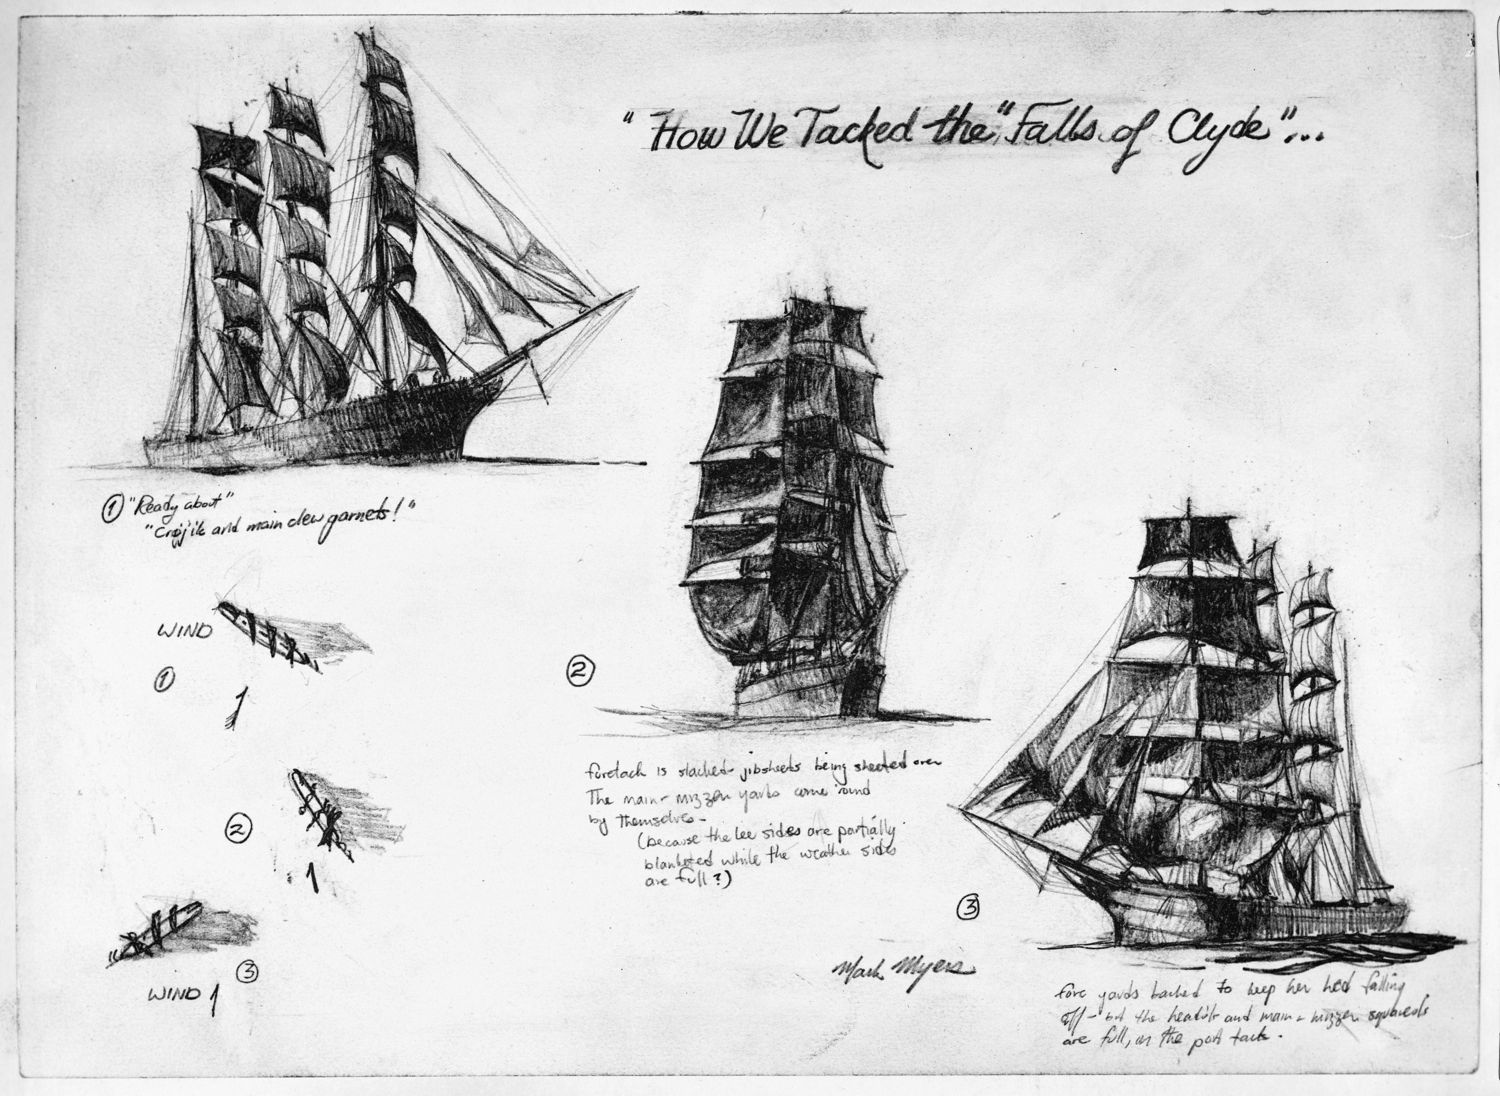 "How We Tacked the "Falls of Clyde"...
① "Ready about"
"Crojjik and main clew garnets!"
WIND
①
②
③
WIND
②
foretack is slacked - jibsheets being sheeted over
The main - mizzen yards come 'round
by themselves -
(because the lee sides are partially
blanketed while the weather sides
are full?)
③
Mark Myers
fore yards backed to keep her head falling
off - but the heads'ls and main - mizzen squares'ls
are full, on the port tack.